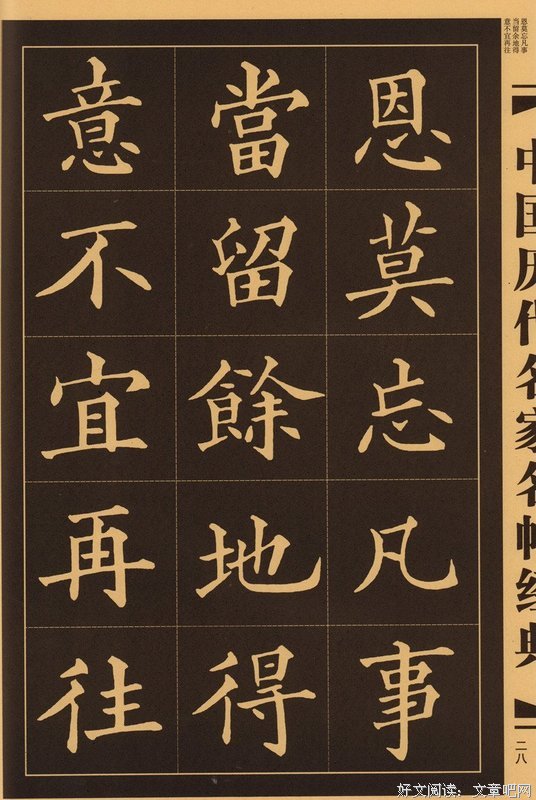 恩莫忘凡事
當留餘地得
意不宜再往
恩莫忘凡事
当留余地得
意不宜再往
中国历代名家名帖经典
二八
好文阅读：文章吧网